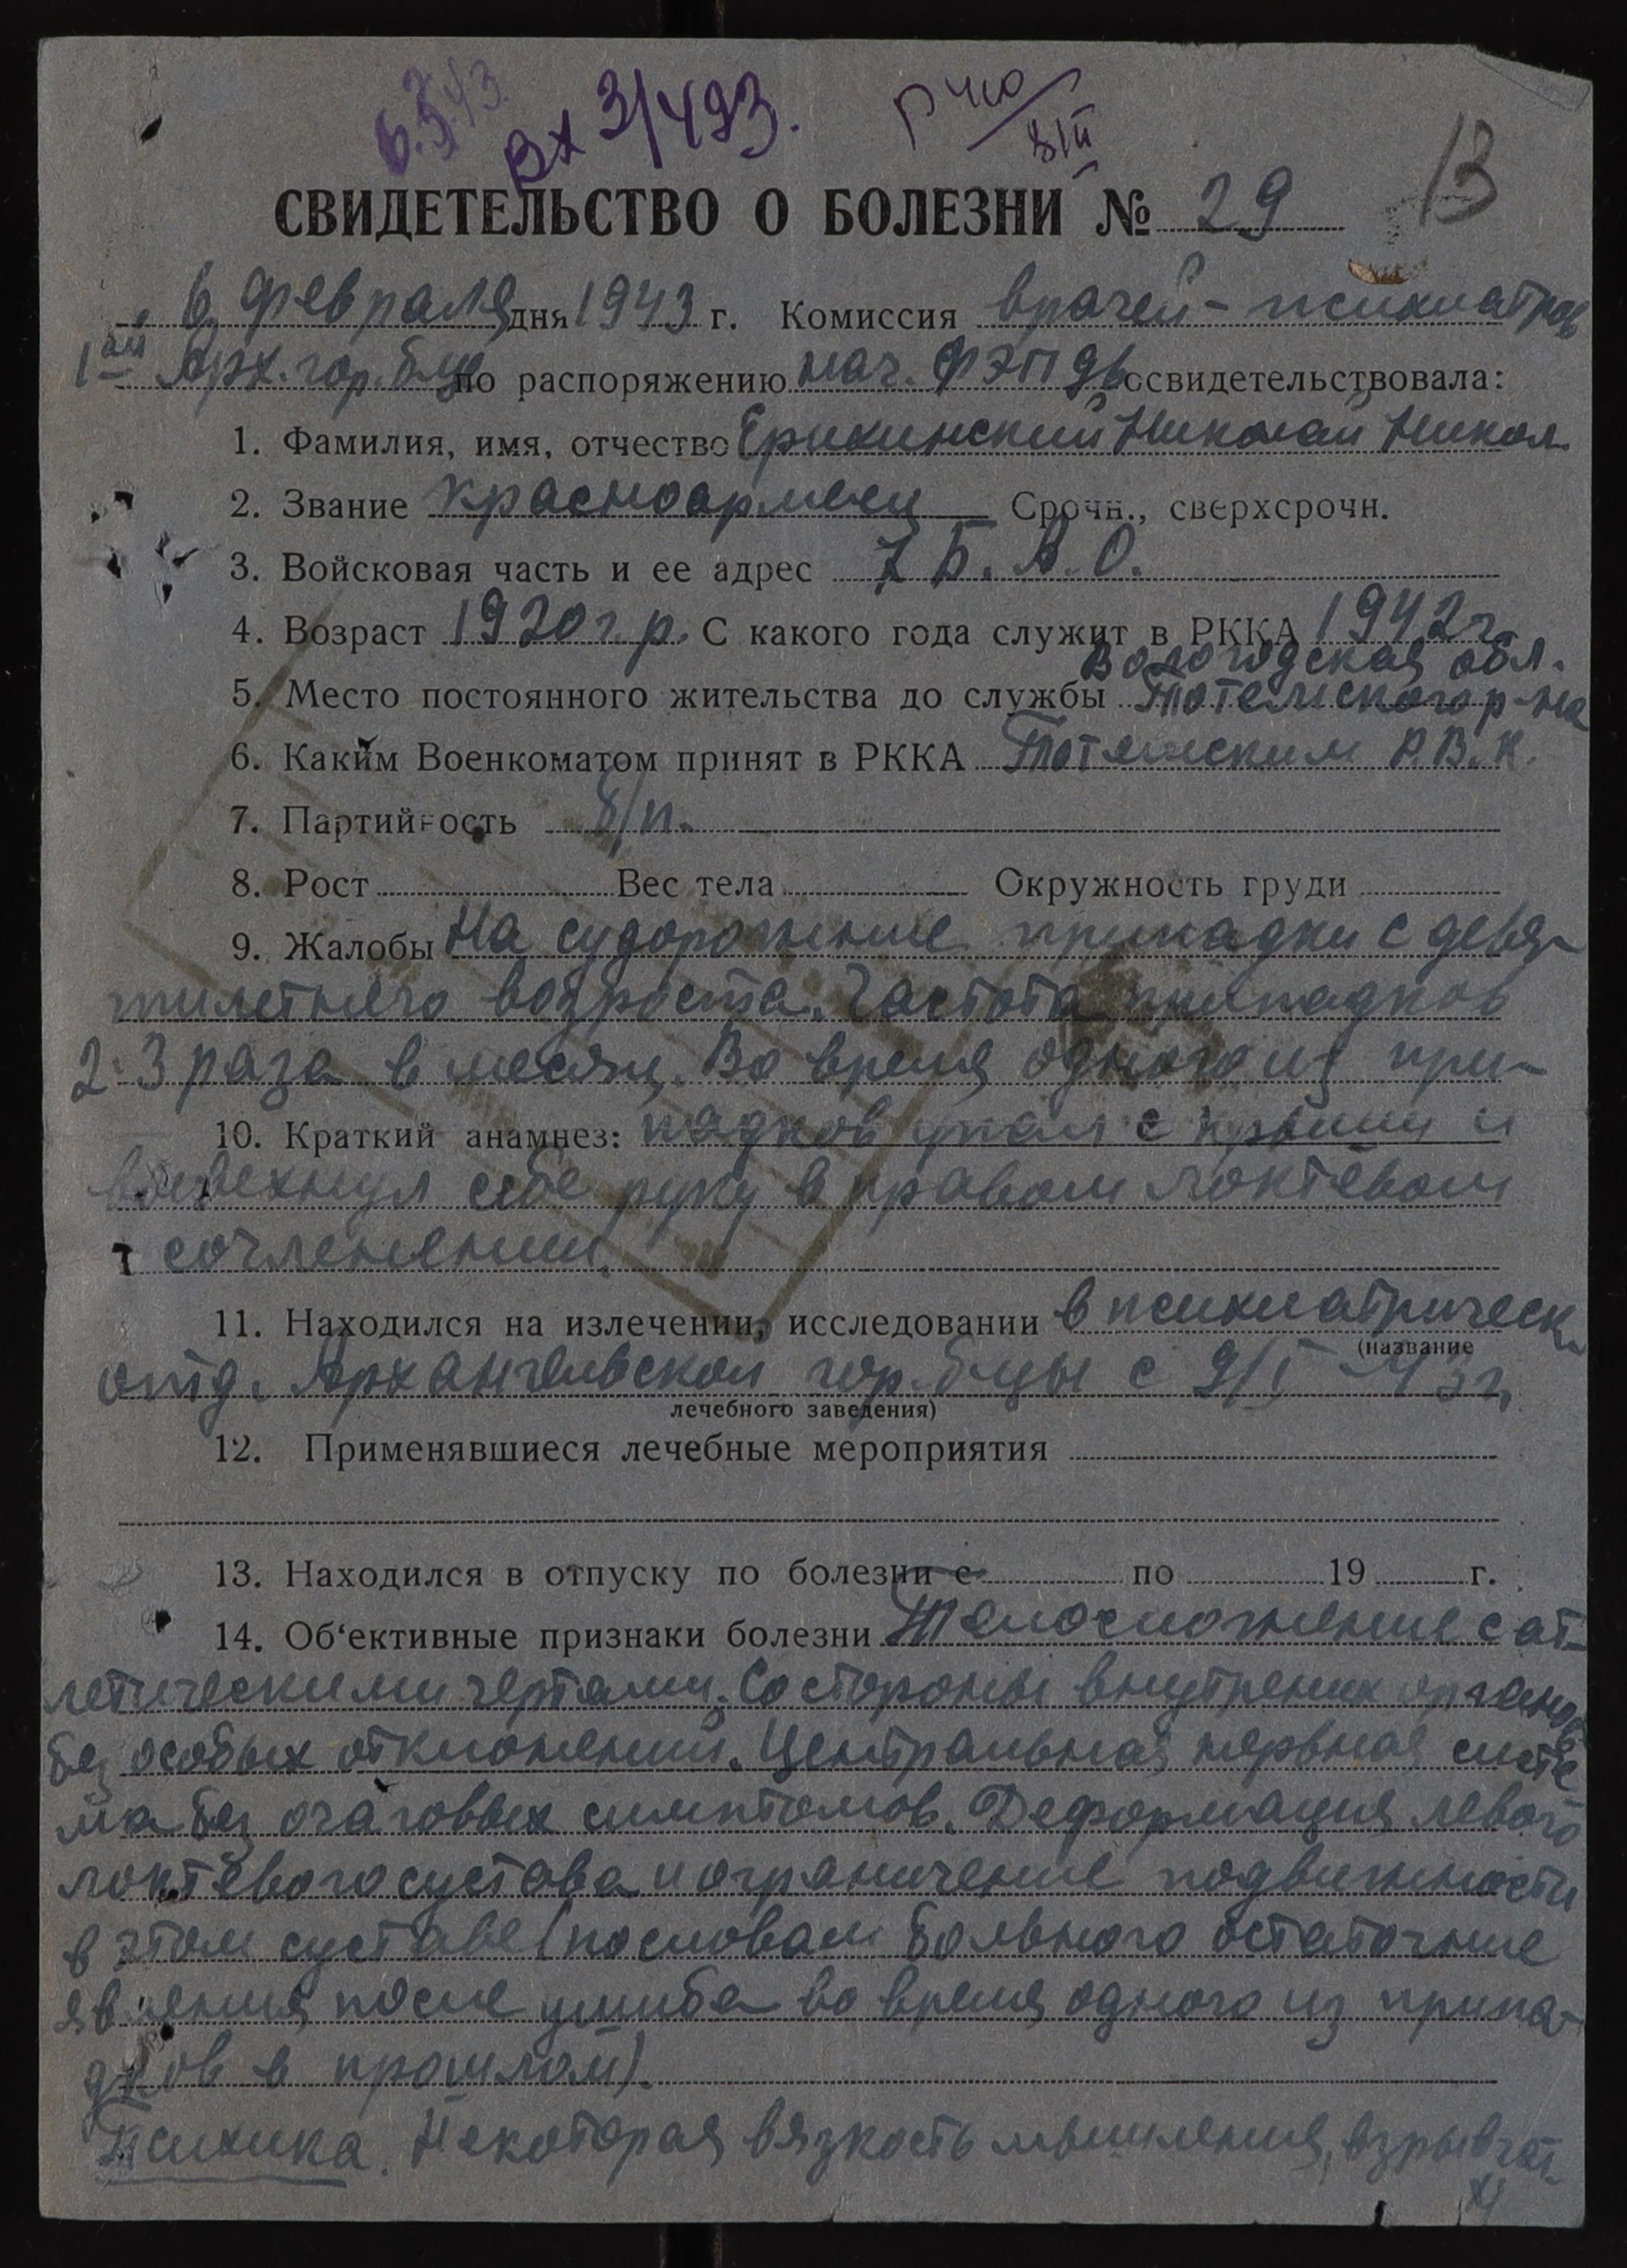 6.2.43. Вх 3/493.
13
СВИДЕТЕЛЬСТВО О БОЛЕЗНИ № 29
„ 6 февраля дня 1943 г. Комиссия врачей-психиатров
1ой Арх. гор. б-цы по распоряжению нач. ФЭП освидетельствовала:
1. Фамилия, имя, отчество Ерихинский Николай Никол.
2. Звание красноармеец Срочн., сверхсрочн.
3. Войсковая часть и ее адрес
4. Возраст 1920 г.р. С какого года служит в РККА 1942 г.
Вологодская обл.
5. Место постоянного жительства до службы Тотемского р-на
6. Каким Военкоматом принят в РККА Тотемским Р.В.К.
7. Партийность б/п.
8. Рост Вес тела Окружность груди
9. Жалобы На судорожные припадки с девя-
тилетнего возроста. Частота припадков
2-3 раза в месяц. Во время одного из при-
10. Краткий анамнез: падков упал с крыши и
вывехнул себе руку в правом локтевом
сочленении.
11. Находился на излечении, исследовании в психиатрическ.
(название
отд. Архангельской гор. б-цы с 9/I-43 г.
лечебного заведения)
12. Применявшиеся лечебные мероприятия
13. Находился в отпуску по болезни с по 19 г.
14. Об‘ективные признаки болезни Телосложение с ат-
летическими чертами. Со стороны внутрених органов
без особых отклонений. Центральная нервная систе-
ма без очаговых симптомов. Деформация левого
локтевого сустава и ограничение подвижности
в этом суставе (по словам больного остаточные
явления после ушиба во время одного из припа-
дков в прошлом).
Психика. Некоторая вязкость мышления, взрывчат-